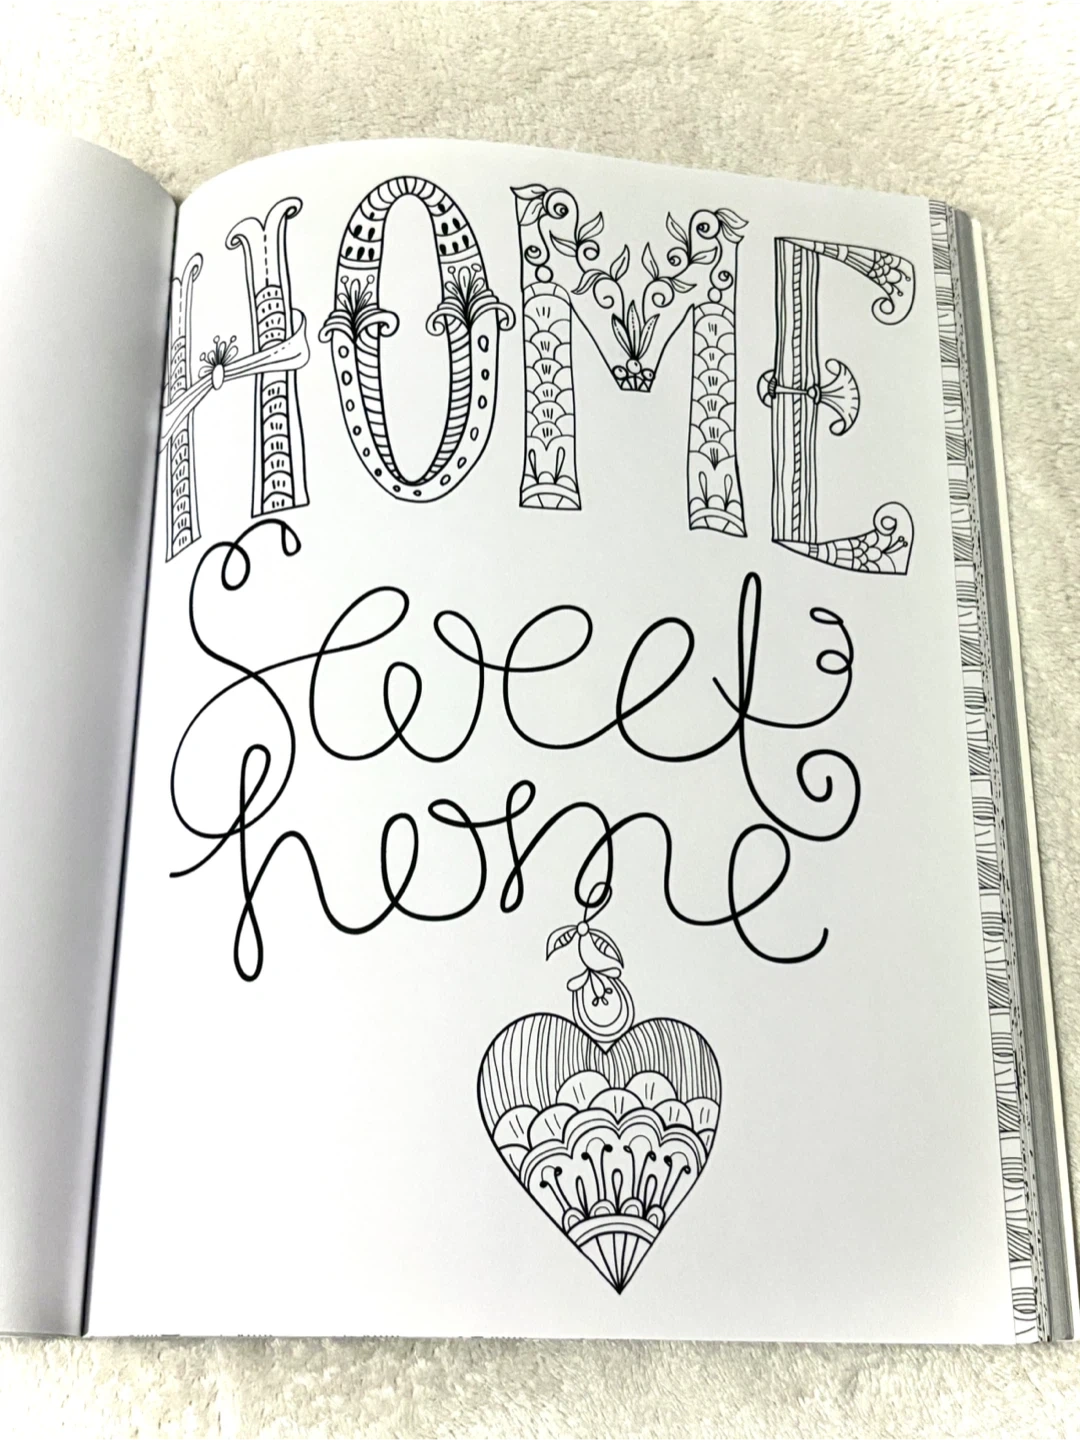 HOME
Sweet
home